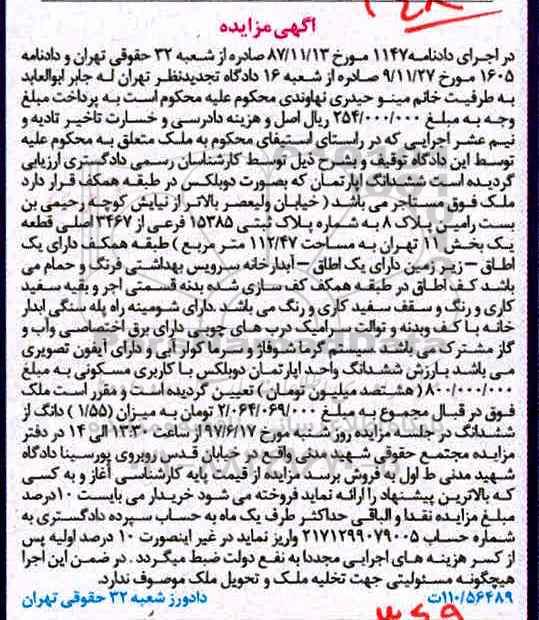 آگهی مزایده
در اجرای دادنامه ۱۱۴۷ مورخ ۸۷/۱۱/۱۳ صادره از شعبه ۳۲ حقوقی تهران و دادنامه
۱۶۰۵ مورخ ۹/۱۱/۲۷ صادره از شعبه ۱۶ دادگاه تجدیدنظر تهران له جابر ابوالعابد
به طرفیت خانم مینو حیدری نهاوندی محکوم علیه محکوم است به پرداخت مبلغ
وجه به مبلغ ۲۵۴/۰۰۰/۰۰۰ ریال اصل و هزینه دادرسی و خسارت تاخیر تادیه و
نیم عشر اجرایی که در راستای استیفای محکوم به ملک متعلق به محکوم علیه
توسط این دادگاه توقیف و بشرح ذیل توسط کارشناسان رسمی دادگستری ارزیابی
گردیده است ششدانگ اپارتمان که بصورت دوبلکس در طبقه همکف قرار دارد
ملک فوق مستاجر می باشد ( خیابان ولیعصر بالاتر از نیایش کوچه رحیمی بن
بست رامین پلاک ۸ به شماره پلاک ثبتی ۱۵۳۸۵ فرعی از ۳۴۶۷ اصلی قطعه
یک بخش ۱۱ تهران به مساحت ۱۱۲/۴۷ متر مربع ) طبقه همکف دارای یک
اطاق – زیر زمین دارای یک اطاق – آبدارخانه سرویس بهداشتی فرنگ و حمام می
باشد کف اطاق در طبقه همکف کف سازی شده بدنه قسمتی اجر و بقیه سفید
کاری و رنگ و سقف سفید کاری و رنگ می باشد .دارای شومینه راه پله سنگی ابدار
خانه با کف وبدنه و توالت سرامیک درب های چوبی دارای برق اختصاصی وآب و
گاز مشترک می باشند .سیستم گرما شوفاژ و سرما کولر آبی و دارای آیفون تصویری
می باشد بارزش ششدانگ واحد اپارتمان دوبلکس با کاربری مسکونی به مبلغ
۸۰۰/۰۰۰/۰۰۰ ( هشتصد میلیون تومان ) تعیین گردیده است و مقرر است ملک
فوق در قبال مجموع به مبلغ ۲/۰۶۴/۰۶۹/۰۰۰ تومان به میزان (۱/۵۵ ) دانگ از
ششدانگ در جلسه مزایده روز شنبه مورخ ۹۷/۶/۱۷ از ساعت ۱۳:۳۰ الی ۱۴ در دفتر
مزایده مجتمع حقوقی شهید مدنی واقع در خیابان قدس روبروی پورسینا دادگاه
شهید مدنی ط اول به فروش برسد مزایده از قیمت پایه کارشناسی آغاز و به کسی
که بالاترین پیشنهاد را ارائه نماید فروخته می شود خریدار می بایست ۱۰ درصد
مبلغ مزایده نقدا و الباقی حداکثر ظرف یک ماه به حساب سپرده دادگستری به
شماره حساب ۲۱۷۱۲۹۹۰۷۹۰۰۵ واریز نماید در غیر اینصورت ۱۰ درصد اولیه پس
از کسر هزینه های اجرایی مجددا به نفع دولت ضبط میگردد . در ضمن این اجرا
هیچگونه مسئولیتی جهت تخلیه ملک و تحویل ملک موصوف ندارد.
۱۱۰/۵۶۴۸۹ت دادورز شعبه ۳۲ حقوقی تهران